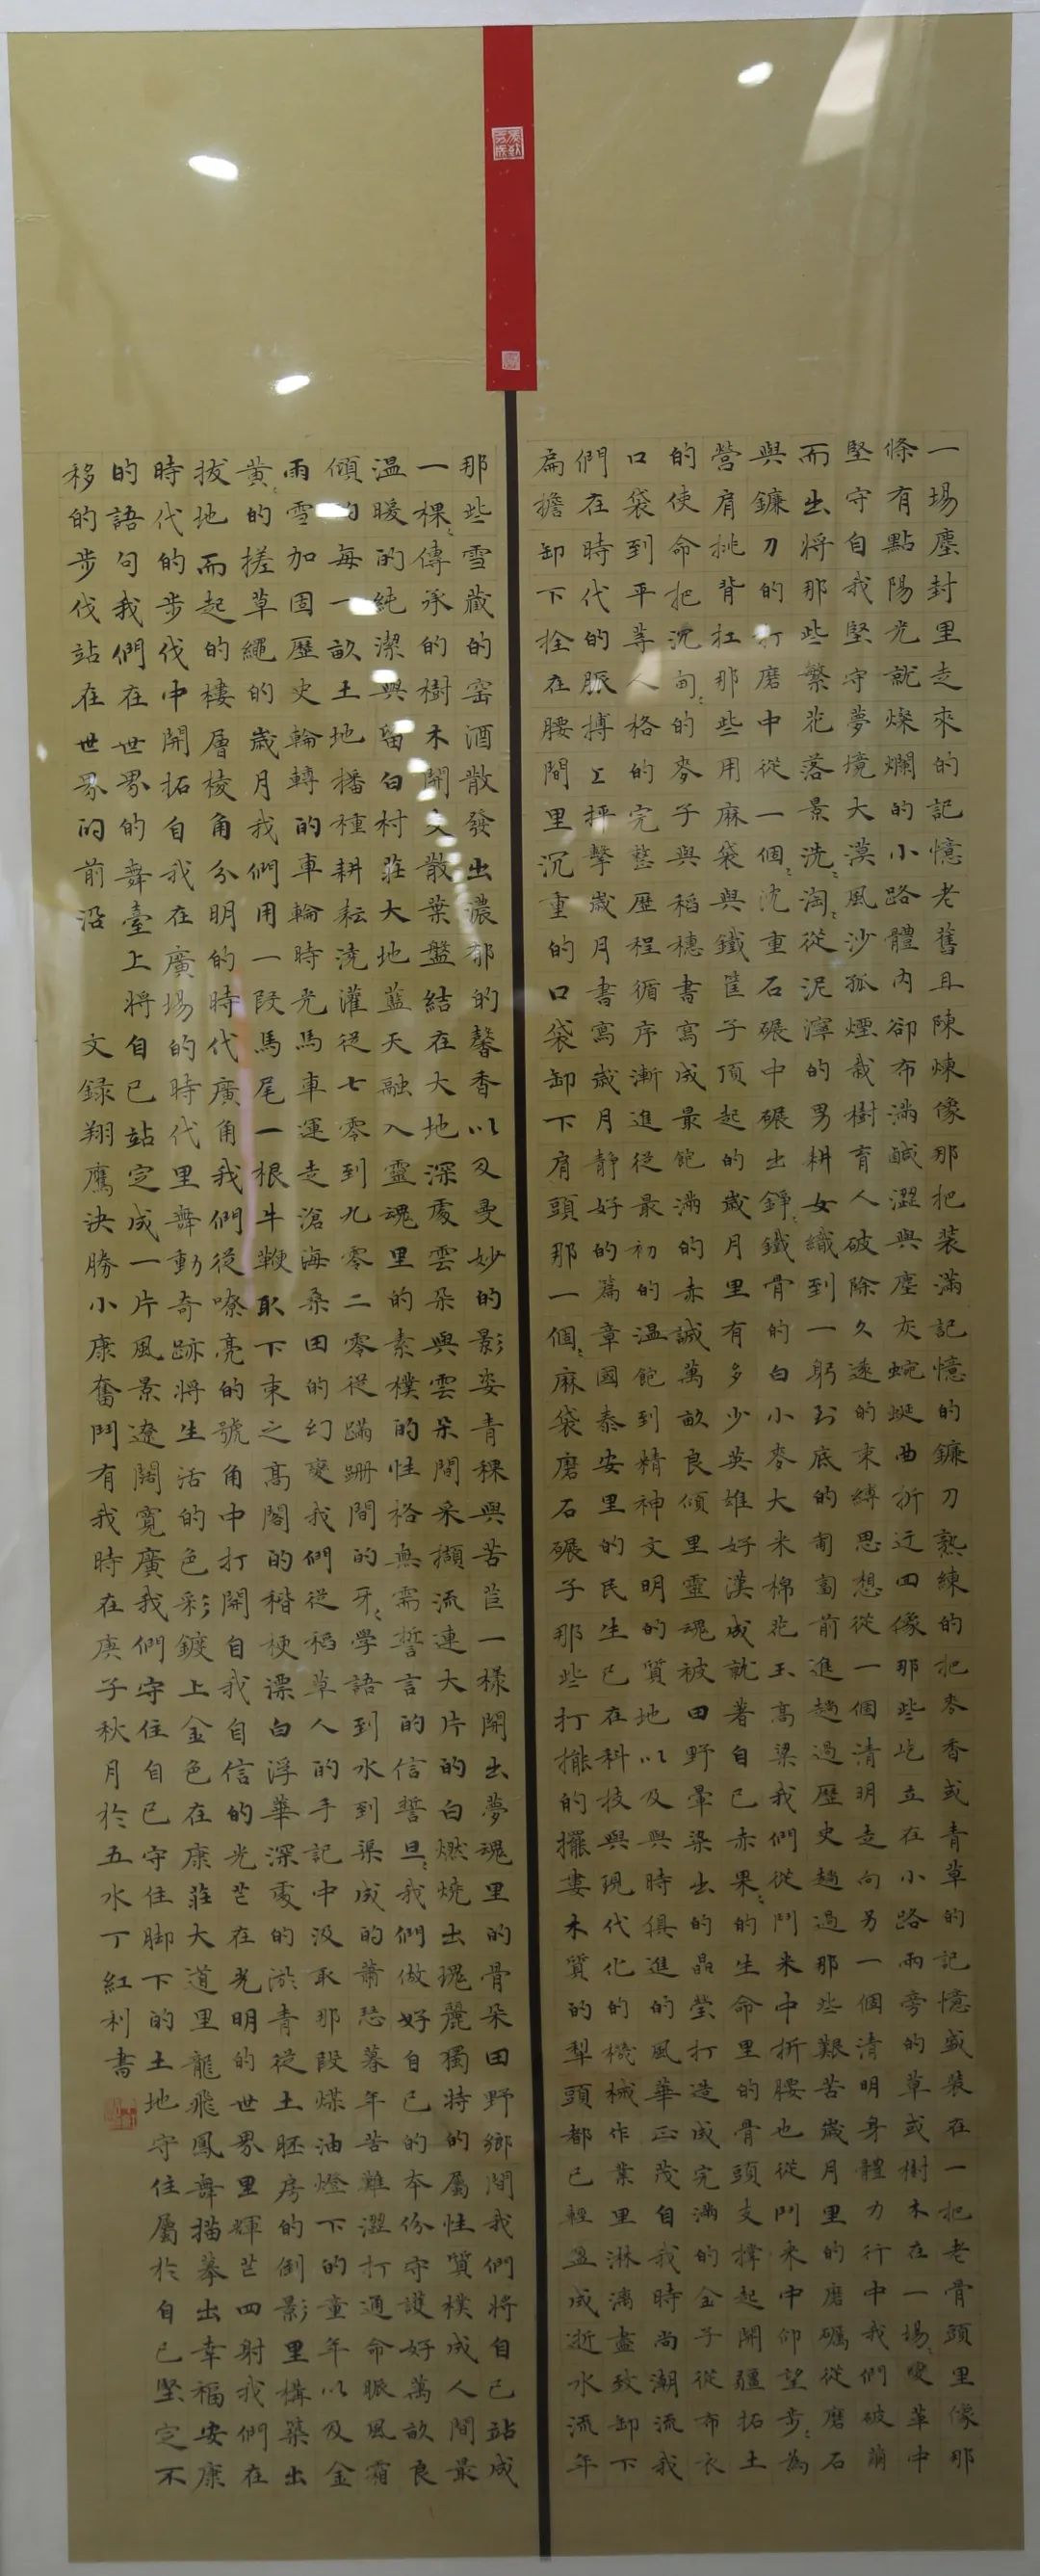 一場塵封里走來的記憶老舊且陳煉像那把裝滿記憶的鐮刀熟練的把麥香或青草的記憶盛裝在一把老骨頭里像那
條有點陽光就燦爛的小路體內卻布滿鹹澀與塵灰蜿蜒曲折迂回像那些屹立在小路兩旁的草或樹木在一場變革中
堅守自我堅守夢境大漠風沙孤煙栽樹育人破除久遠的束縛思想從一個清明走向另一個清明身體力行中我們破繭
而出將那些繁花落景洗淘從泥濘的男耕女織到一躬到底的匍匐前進趟過歷史趟過那些艱苦歲月里的磨礪從磨石
與鐮刀的打磨中從一個沈重石碾中碾出錚鐵骨的白小麥大米棉花玉高粱我們從鬥來中折腰也從門來中仰望步為
營肩挑背扛那些用麻袋與鐵筐子頂起的歲月里有多少英雄好漢成就著自己赤果的生命里的骨頭支撐起開疆拓土
的使命把沈甸的麥子與稻穗書寫成最飽滿的赤誠萬畝良傾里靈魂被田野暈染出的晶瑩打造成完滿的金子從布衣
口袋到平等人格的完整歷程循序漸進從最初的溫飽到精神文明的質地以及與時俱進的風華正茂自我時尚潮流我
們在時代的脈搏上抨擊歲月書寫歲月靜好的篇章國泰安里的民生已在科技與現代化的機械作業里淋漓盡致卸下
扁擔卸下拴在腰間里沉重的口袋卸下肩頭那一個麻袋磨石碾子那些打攏的擺婁木質的犁頭都已輕盈成逝水流年
那些雪藏的窖酒散發出濃郁的馨香以及曼妙的影姿青稞與苦苣一樣開出夢魂里的骨朵田野鄉間我們將自己站成
一棵傳承的樹木開支散葉盤結在大地深處雲朵與雲朵間采擷流連大片的白燃燒出瑰麗獨特的屬性質樸成人間最
溫暖的純潔與留白村莊大地藍天融入靈魂里的素樸的性格無需誓言的信誓旦我們做好自己的本份守護好萬畝良
傾的每一畝土地播種耕耘澆灌從七零到九零二零從蹣跚間的牙學語到水到渠成的蕭恐暮年苦難澀打通命脈風霜
雨雪加固歷史輪轉的車輪時光馬車運走滄海桑田的幻變我們從稻草人的手記中汲取那段煤油燈下的童年以及金
黃的搓草繩的歲月我們用一段馬尾一根牛鞭取下束之高閣的稭梗漂白浮華深處的淤青從土胚房的倒影里構築出
拔地而起的樓層棱角分明的時代廣角我們從嘹亮的號角中打開自我自信的光芒在光明的世界里輝芒四射我們在
時代的步伐中開拓自我在廣場的時代里舞動奇跡將生活的色彩鍍上金色在康莊大道里龍飛鳳舞描摹出幸福安康
的語句我們在世界的舞臺上將自己站定成一片風景遼闊寬廣我們守住自己守住腳下的土地守住屬於自己堅定不
移的步伐站在世界的前沿
文錄翔鷹決勝小康奮鬥有我時在庚子秋月於五水丁紅利書